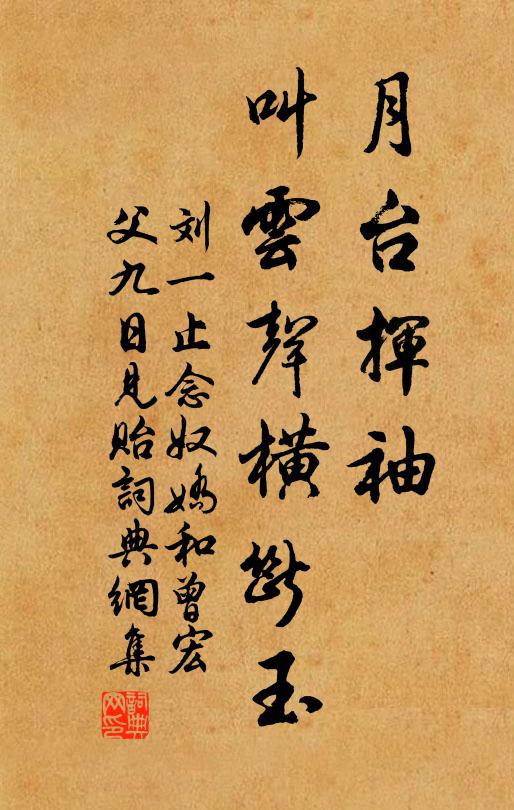 月台揮袖
叫雲聲橫斷玉
刘一止念奴嬌和曾宏
父九日見貽詞典網集
詞典
网印